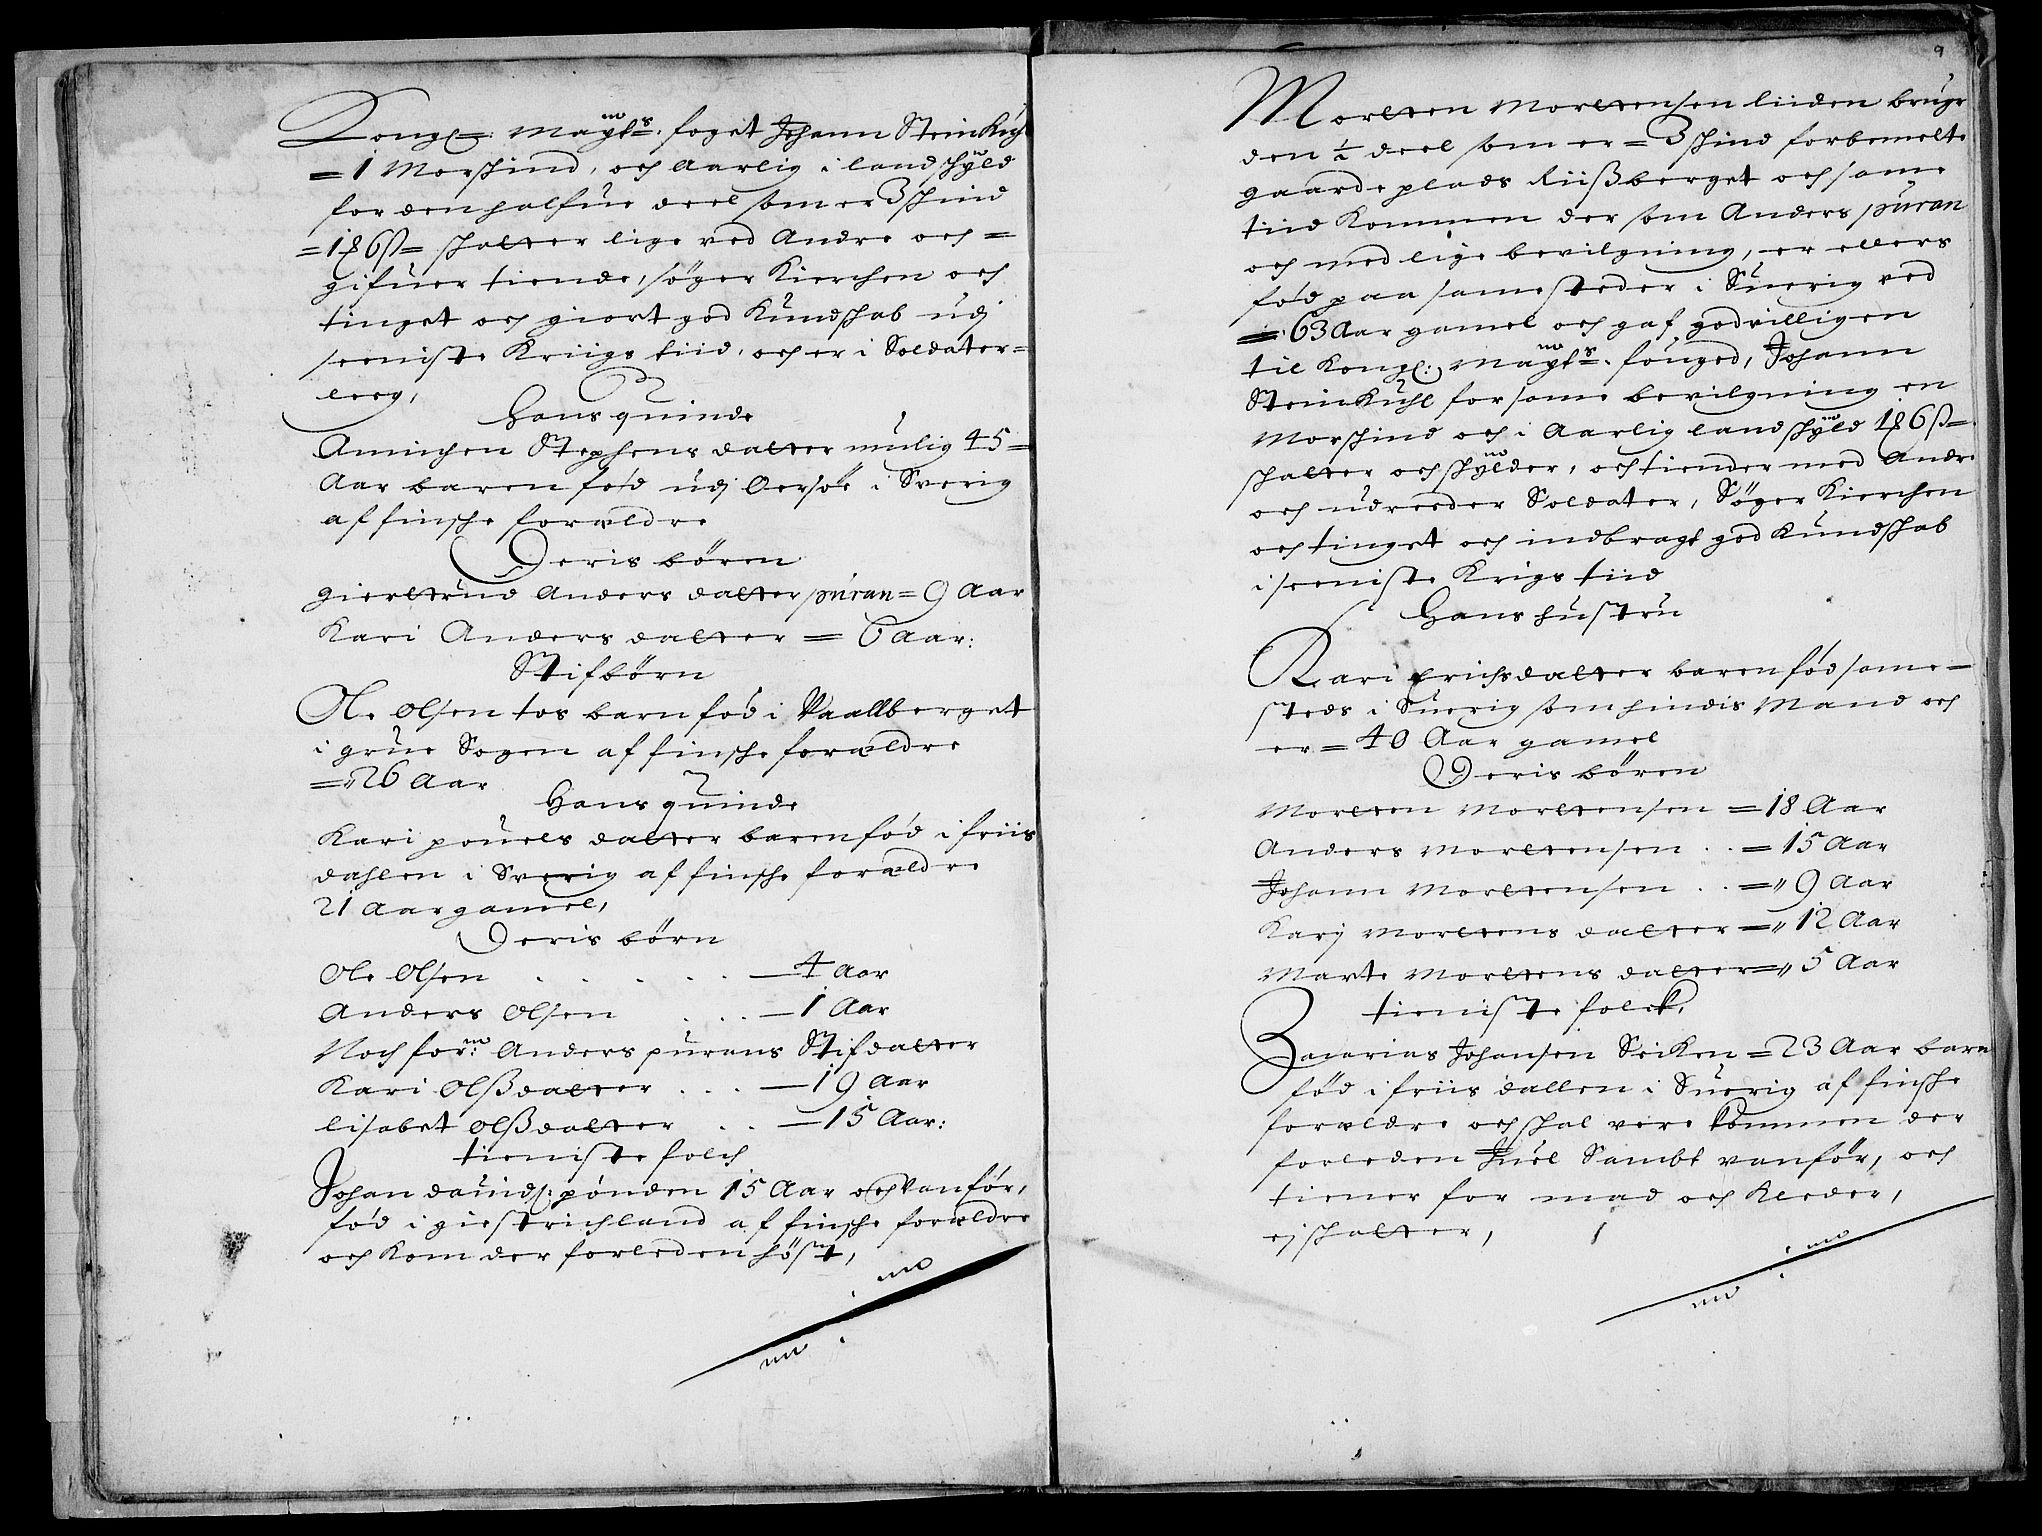 Kongl: Mayts: foget Johann Steinkuhl
= 1 Morschind, och Aarlig i landschyld
for den halfue deel som er 3 schind
= 1 ℞ 6 ß = schatter lige ved Andre och =
gifuer tiende, søger Kierchen och
tinget och giort god Kundschab udj
seeniste Kriigs tiid, och er i Soldater=
leeg,
Hans quinde
Annichen Stephens datter mulig 45 =
Aar baren fød udj Oersøe i Sverig
af finsche forældre
Deris børen
Giertrud Anders datter puran = 9 Aar
Kari Anders datter = 6 Aar:
Stifbørn
Ole Olsen tos barn fød i Vaallberget
i grue Sogen af finsche forældre
= 26 Aar
Hans quinde
Kari pouels datter baren fød i friis
dahlen i Sverig af finsche forældre
21 Aar gamel,
Deris børn
Ole Olsen . . . . . — 4 Aar
Anders Olsen . . . — 1 Aar
Noch forn: Anders purans Stifdatter
Kari Olßdatter . . . — 19 Aar
lisabet Olßdatter . . — 15 Aar:
tieniste folch
Johan dauids: pønden 15 Aar och vanfør,
fød i giestrichland af finsche forældre
och kom der forleden høst,
9
Morten Mortensen liiden bruger
den ½ deel som er = 3 schind forbemelte
gaarde plads Riißberget och same
tiid Kommen der som Anders puran
och med lige bevilgning, er ellers
fød paa samesteder i Suerig ved
= 63 Aar gamel och gaf godvilligen
til Kongl: Mayts: fouged, Johann
Steinkuhl for same bevilgning en
Morschind och i Aarlig landschyld 1 ℞ 6 ß =
schatter och schylder, och tiender med Andre
och udreeder Soldater, Søger Kierchen
och tinget och indbragt god Kundschab
i seeniste Krigs tiid
Hans hustru
Kari Erichsdatter baren fød same=
steds i Suerig som hindis Mand och
er = 40 Aar gamel
Deris børen
Morten Mortensen = 18 Aar
Anders Mortensen . . = 15 Aar
Johann Mortensen . . = 9 Aar
Karj Mortens datter = 12 Aar
Marte Mortens datter = 5 Aar
tieniste folck,
Zacarias Johansen Seiken = 23 Aar barn
fød i friis dallen i Suerig af finsche
forældre och schal vere kommen der
forleden Juel Sambt vanfør, och
tiener for mad och Kleder,
ej schatter,